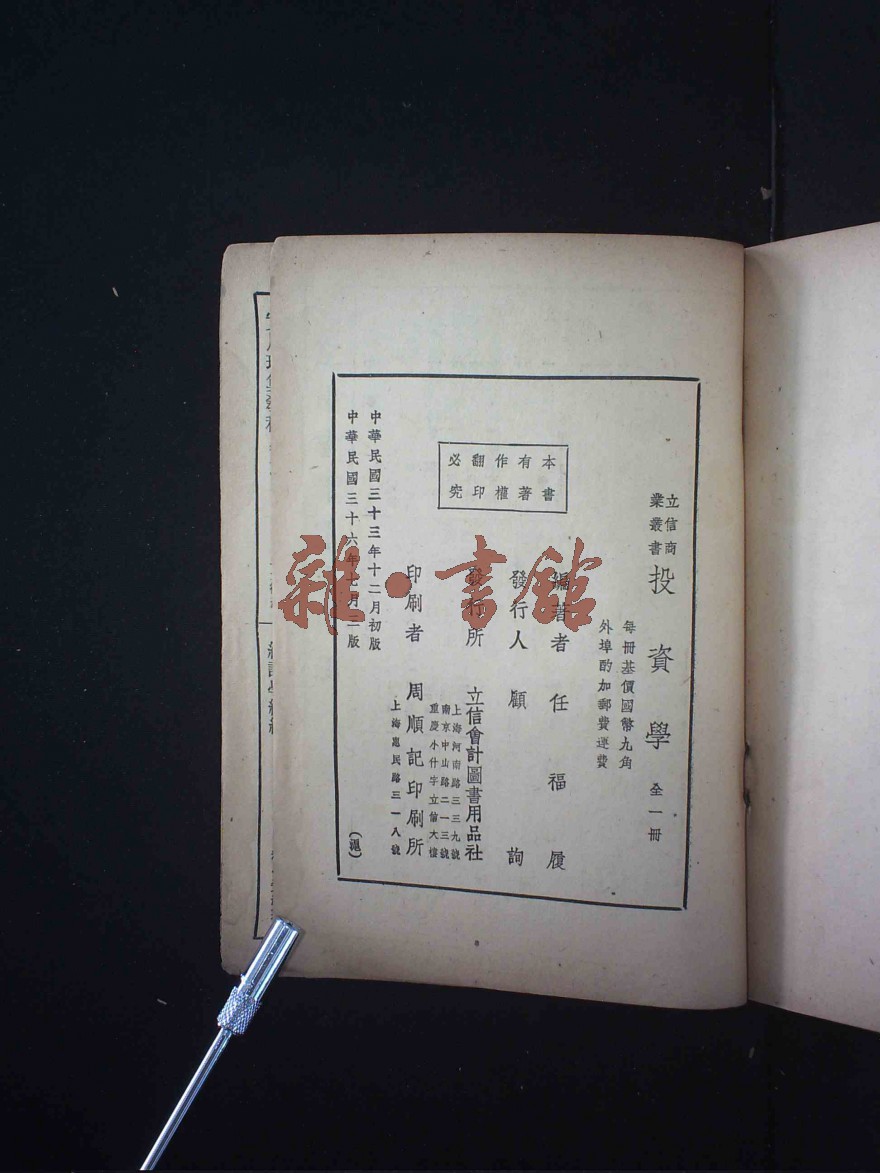 立信商
業叢書
投資學 全一冊
每冊基價國幣九角
外埠酌加郵費運費
本書
有著
作權
翻印
必究
編著者 任福履
發行人 顧詢
發行所 立信會計圖書用品社
上海河南路三三九號
南京中山路二一三號
重慶小什字立信大樓
印刷者 周順記印刷所
上海惠民路三一八號
中華民國三十三年十二月初版
中華民國三十六年七月三版
(滬)
雜·書館